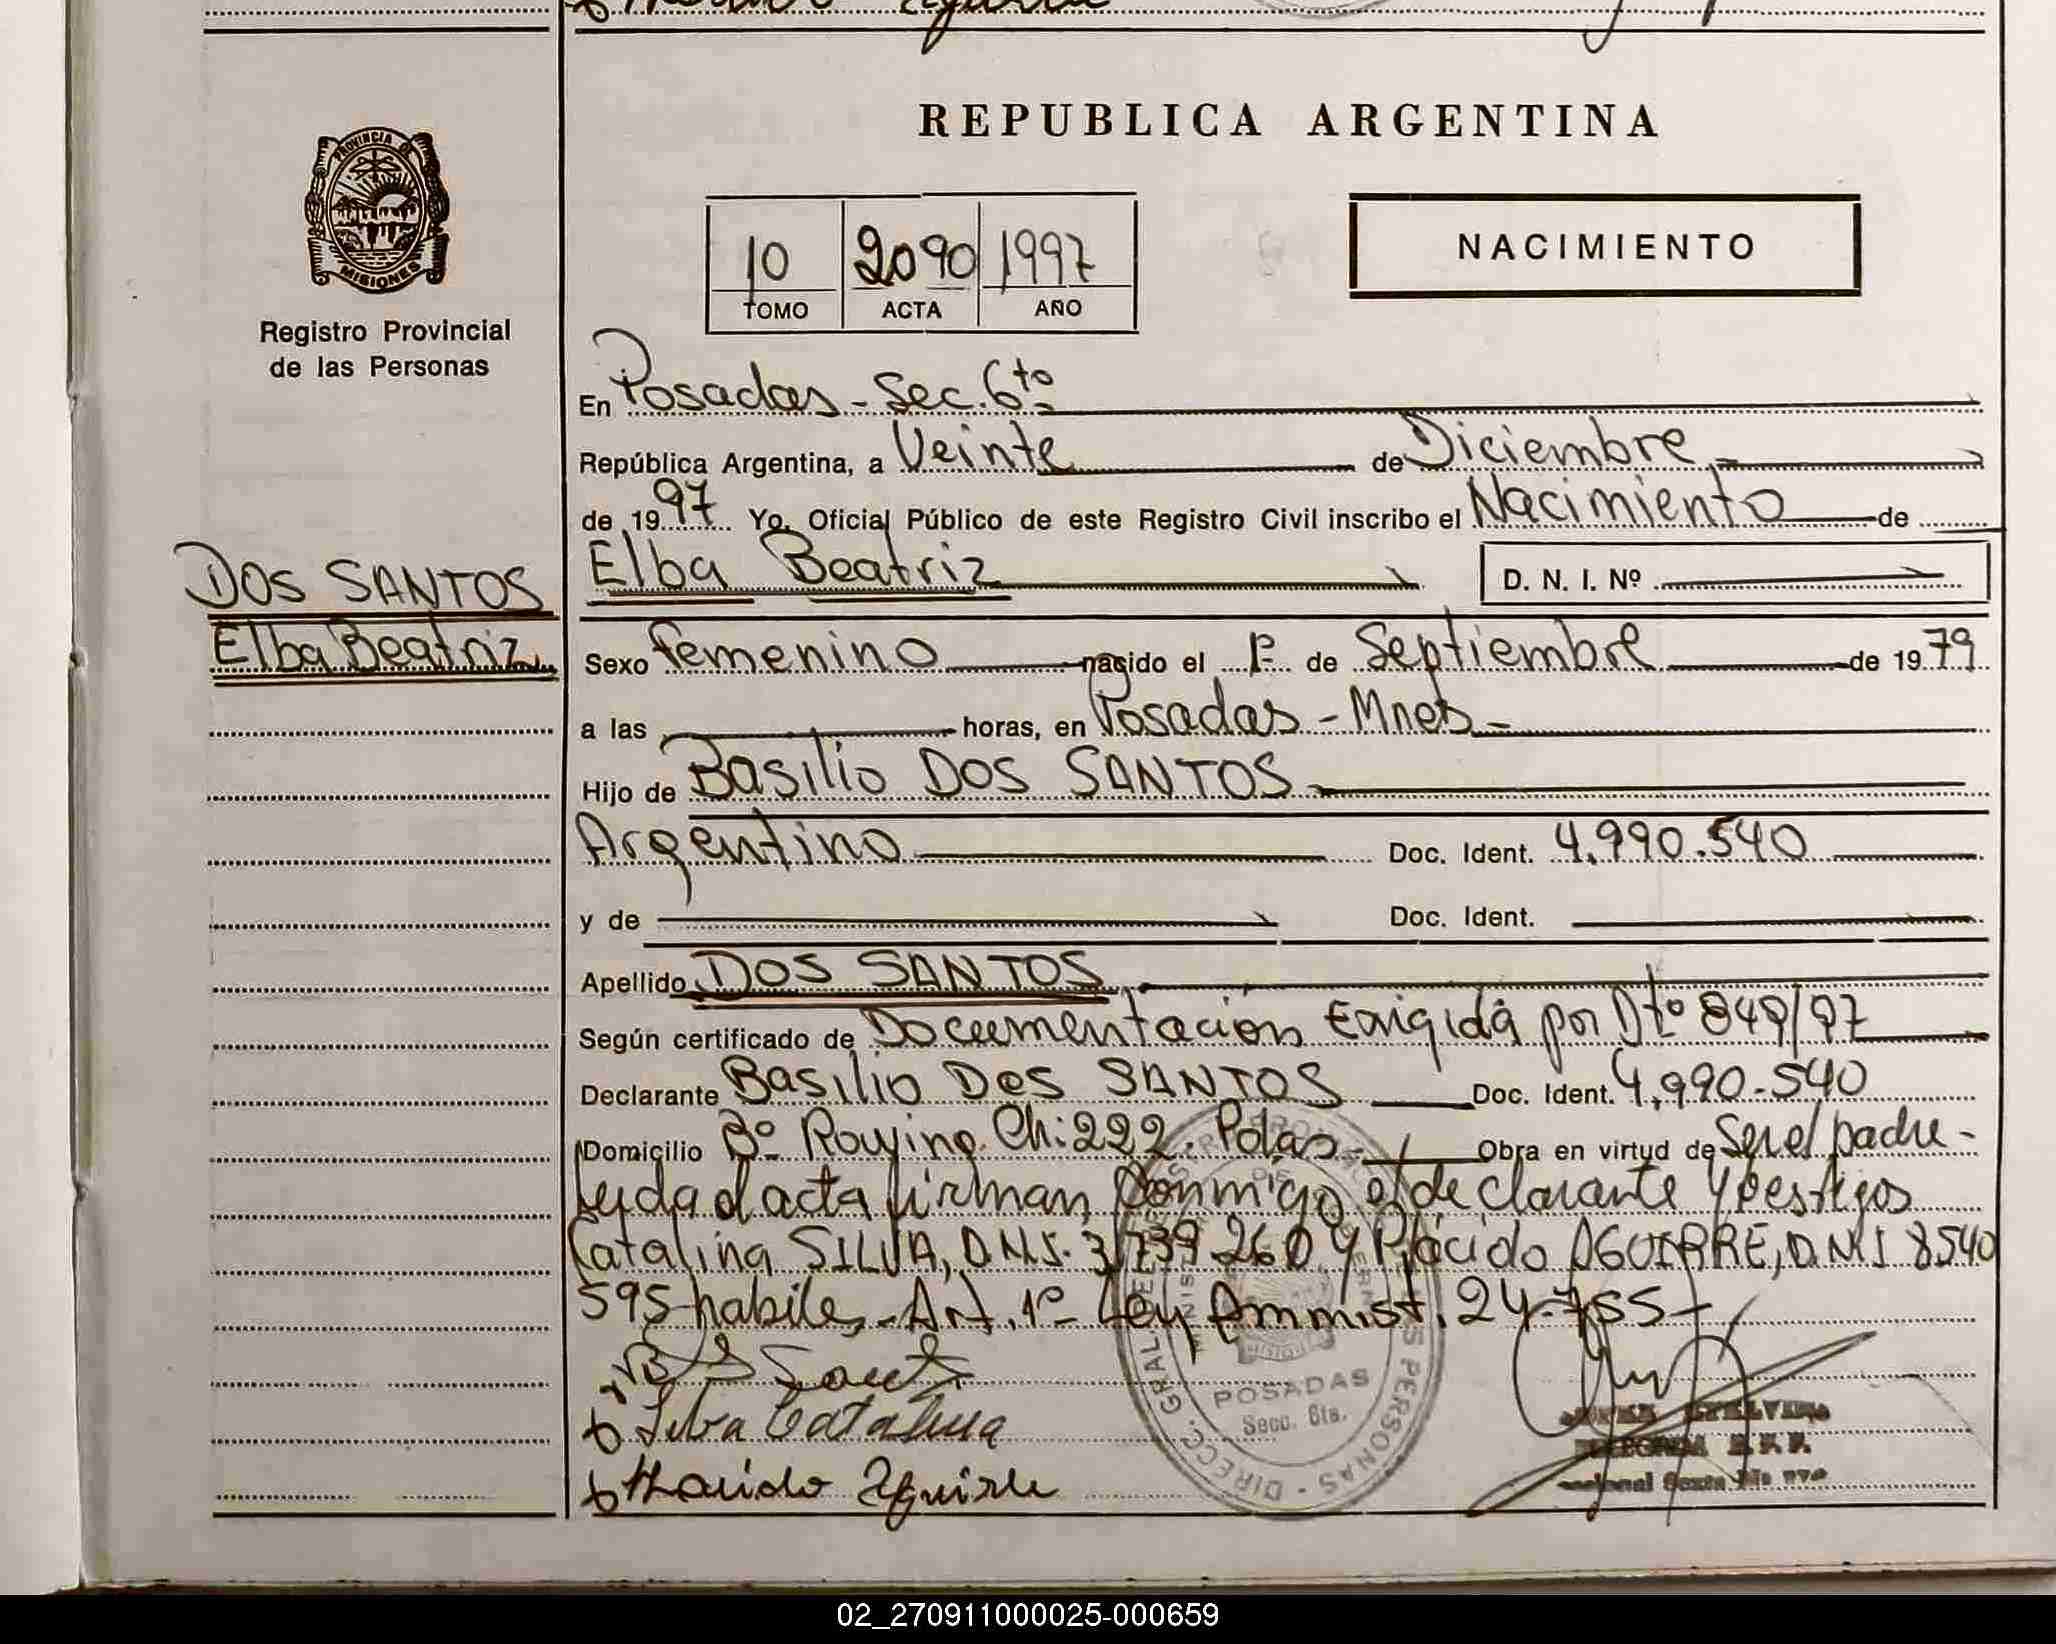 REPUBLICA ARGENTINA
PROVINCIA DE
MISIONES
Registro Provincial
de las Personas
NACIMIENTO
10 2090 1997
TOMO ACTA AÑO
En Posadas - Sec. 6to
República Argentina, a Veinte de Diciembre
de 1997 Yo, Oficial Público de este Registro Civil inscribo el Nacimiento de
DOS SANTOS
Elba Beatriz
Elba Beatriz D. N. I. Nº
Sexo femenino nacido el 1º de Septiembre de 1979
a las horas, en Posadas - Mnes -
Hijo de Basilio DOS SANTOS
Argentino Doc. Ident. 4.990.540
y de Doc. Ident.
Apellido DOS SANTOS
Según certificado de Documentacion Exigida por Dto 849/97
Declarante Basilio DOS SANTOS Doc. Ident. 4.990.540
Domicilio Bº Rowing Ch: 222. Pdas - Obra en virtud de Ser el padre -
Leida el acta firman Conmigo el declarante y testigos
Catalina SILVA, D.N.I. 3.739.260 y Plácido AGUIRRE, D.N.I 8540
595 habiles - Art. 1º - Ley Ammist. 24.755 -
Silva Catalina
Aguirre
POSADAS
Secc. 6ta.
02_270911000025-000659